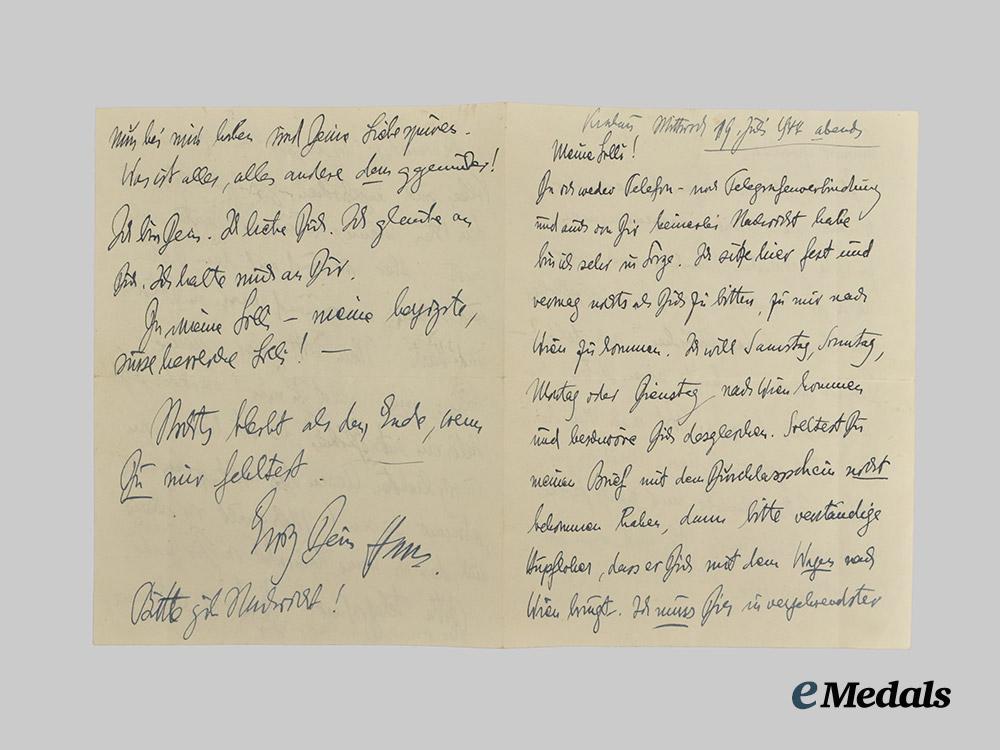 Mittwoch 19. Juli 1944 abends
Meine Lilli!
Da ich weder Telefon- noch Telegrafenverbindung
und auch von Dir keinerlei Nachricht habe
bin ich sehr in Sorge. Ich sitze hier fest und
vermag nichts als Dich zu bitten, zu mir nach
Wien zu kommen. Ich will Samstag, Sonntag,
Montag oder Dienstag nach Wien kommen
und beschwöre Dich desgleichen. Solltest Du
meinen Brief mit dem Durchlassschein nicht
bekommen haben, dann bitte verständige
Hupfloher, dass er Dich mit dem Wagen nach
Wien bringt. Ich muss Dich in verzehrendster
bei mir haben und Deine Liebe spüren.
Was ist alles, alles andere dem gegenüber!
Ich bin Dein. Ich liebe Dich. Ich glaube an
Dich. Ich halte mich an Dir.
Du meine Lilli – meine herzigste,
süsse herrliche Lilli! —
Nichts bleibt als das Ende, wenn
Du mir fehltest
Ewig Dein Hans.
Bitte gib Nachricht!
eMedals